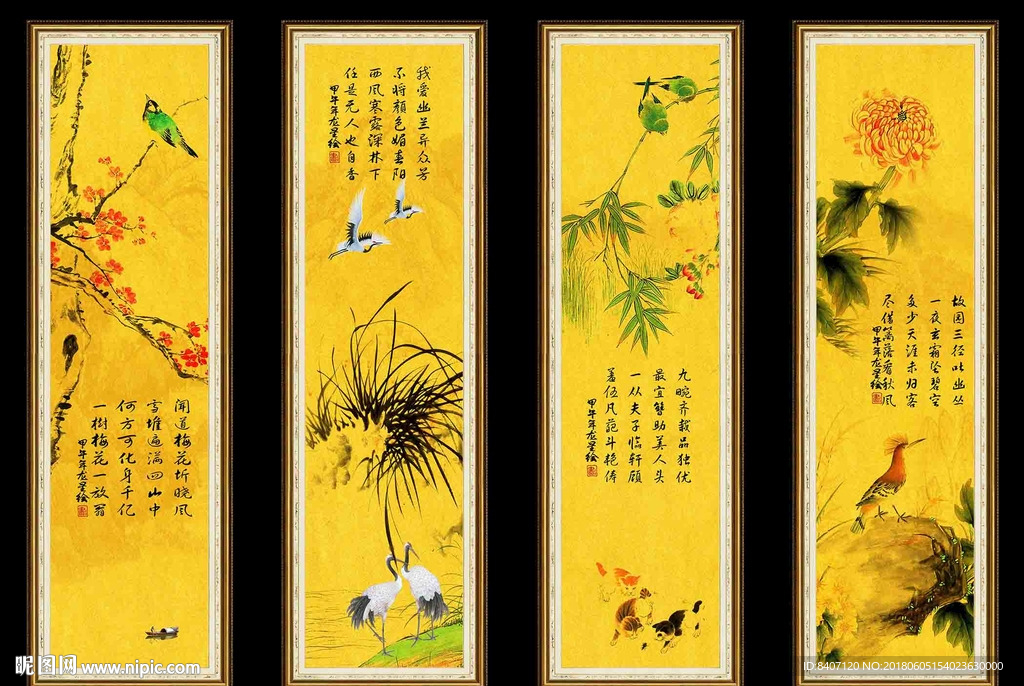 闻道梅花坼晓风
雪堆遍满四山中
何方可化身千亿
一樹梅花一放翁
甲午年龙星绘
我爱幽兰异众芳
不将颜色媚春阳
西风寒露深林下
任是无人也自香
甲午年龙星绘
九畹齐栽品独优
最宜簪助美人头
一从夫子临轩顾
羞伍凡葩斗艳俦
甲午年龙星绘
故园三径吐幽丛
一夜玄霜坠碧空
多少天涯未归客
尽借篱落看秋风
甲午年龙星绘
昵图网 www.nipic.com
ID:8407120 NO:20180605154023630000